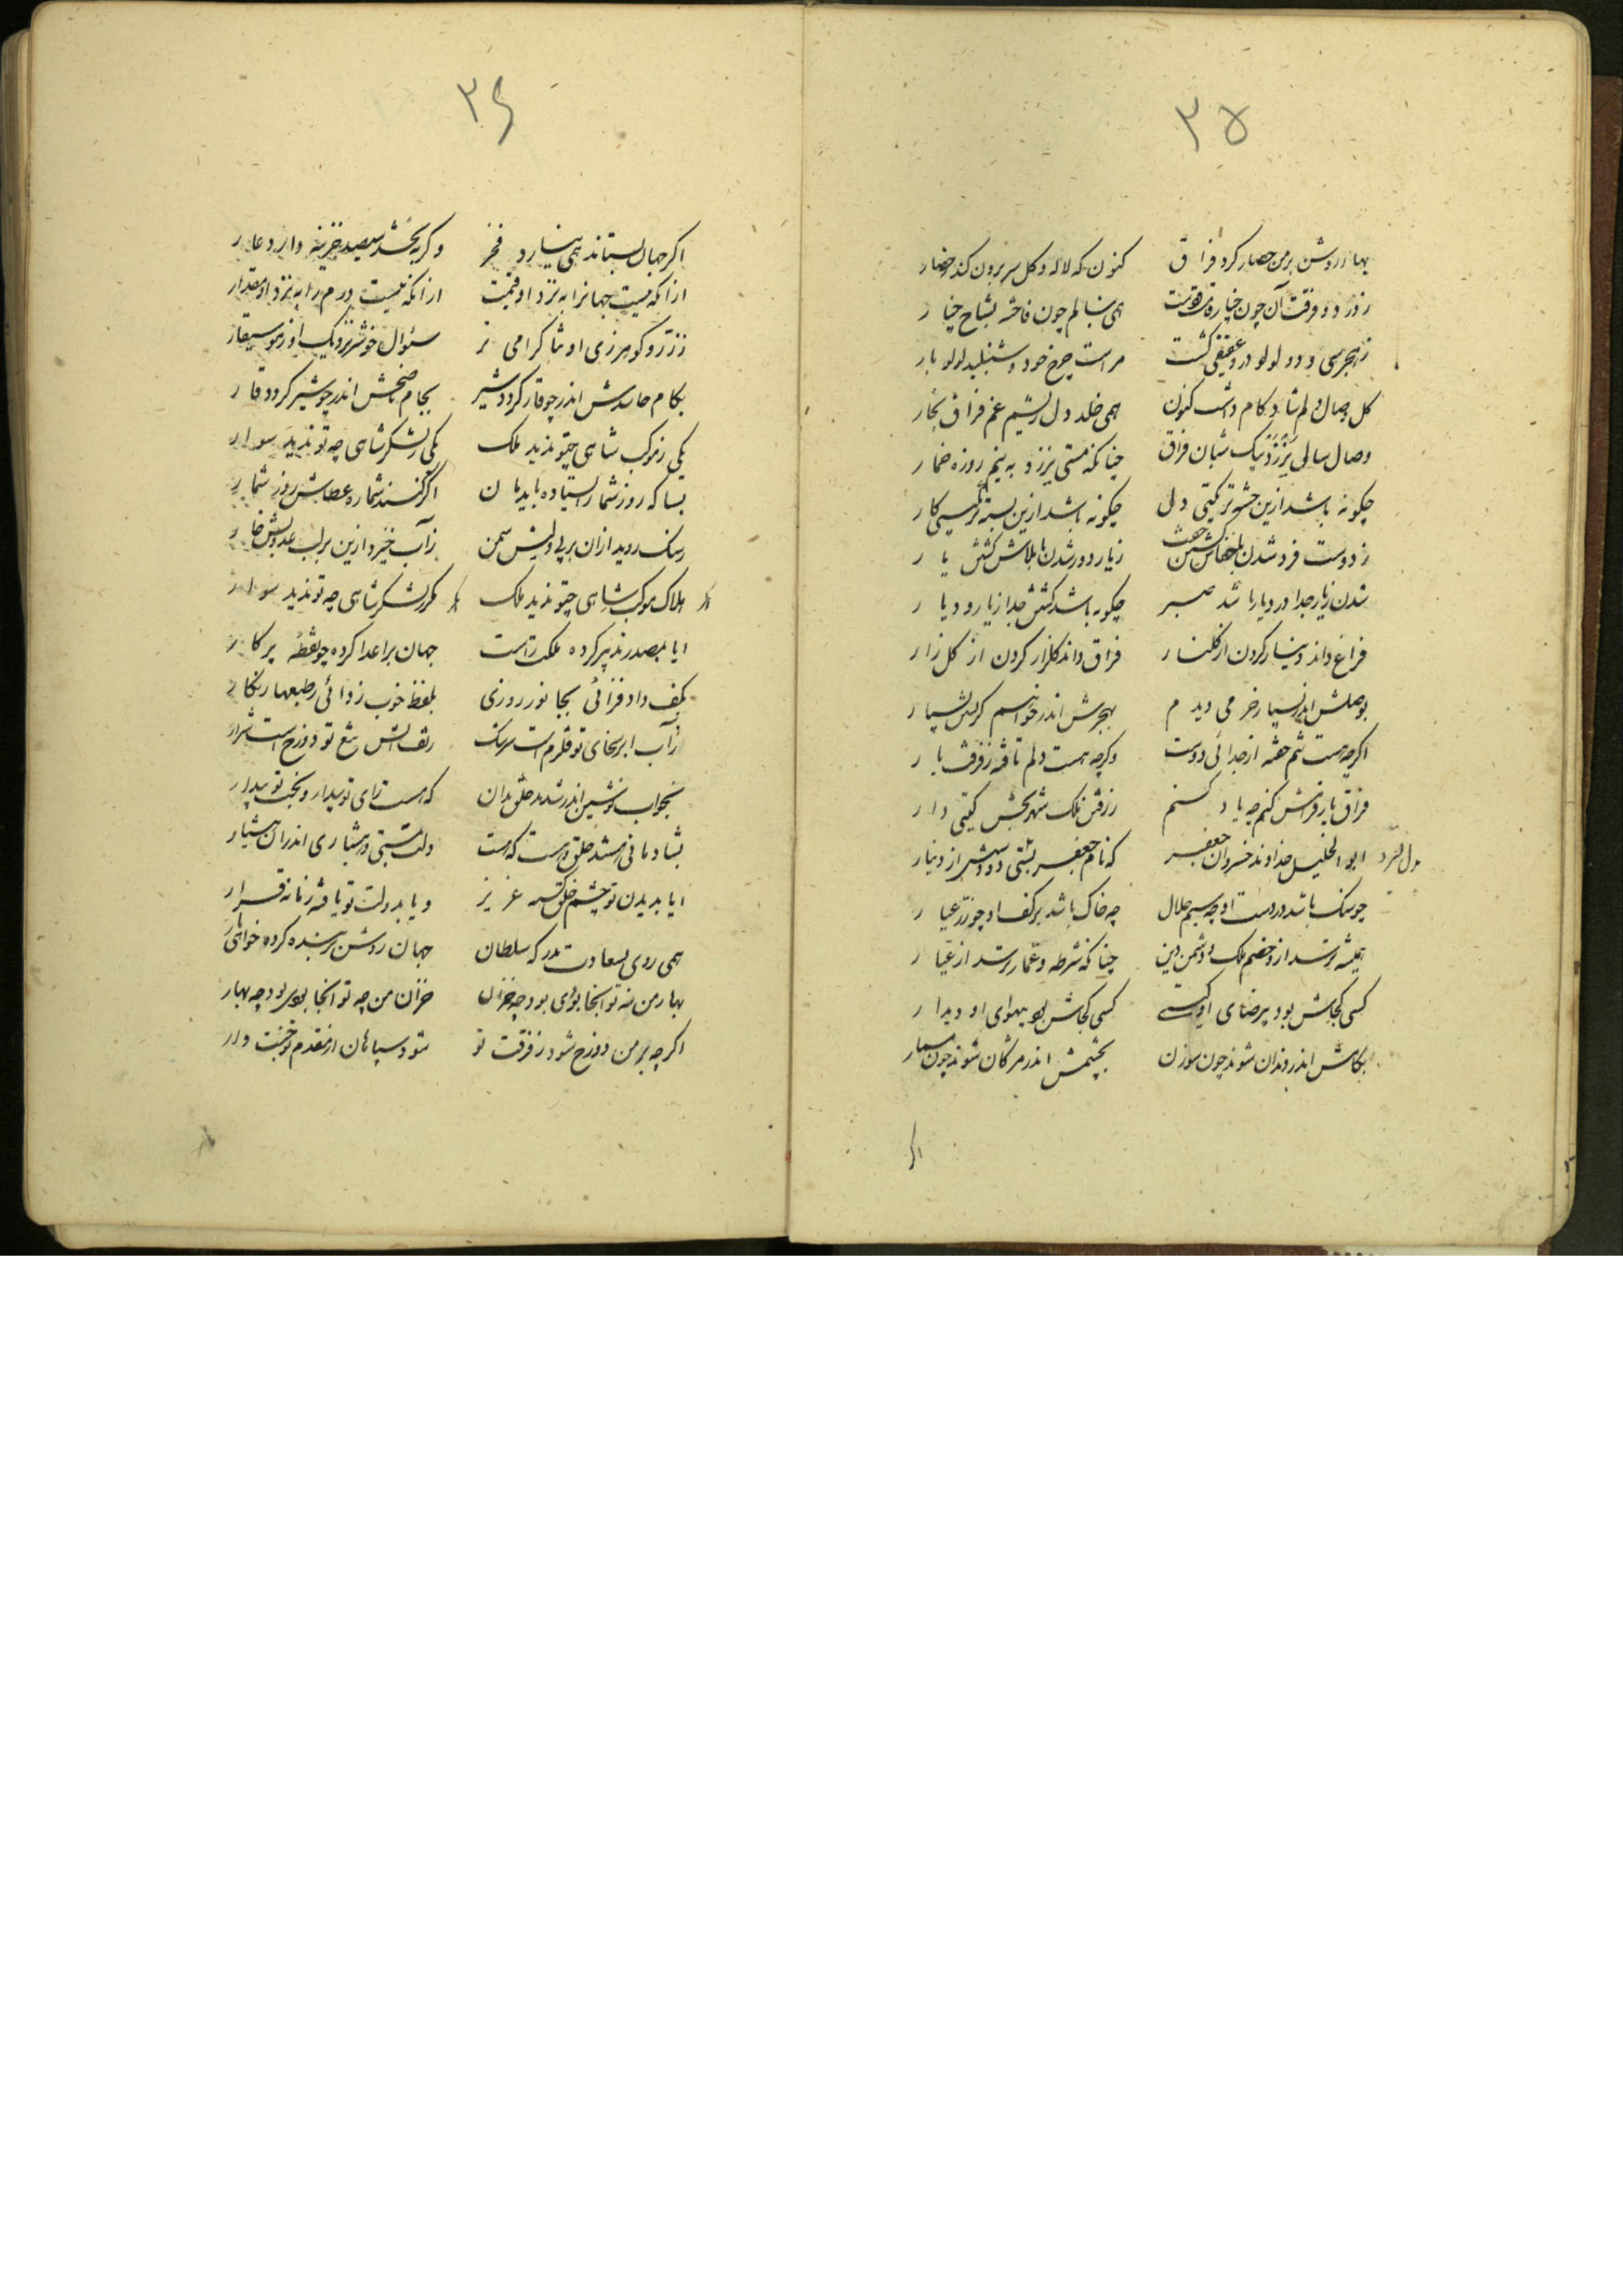 ۳۵
بهار روشن بر من حصار کرد فراق کنون که لاله و گل سر برون کند ز حصار
ز درد فرقت آن چون چنار قامت دوست همی بنالم چون فاخته بشاخ چنار
ز هجر سی و دو لولو دو عقیقی گشت مراست چرخ خود و شنبلید لولو بار
گل وصال دلم شاد کام داشت کنون همی خلد دل ریشم غم فراق بخار
وصال سالی نرزد بیک شبان فراق چنانکه مستی نرزد به نیم روزه خمار
چگونه باشد ازین خسته تر بگیتی دل چگونه باشد ازین بسته تر بگیتی کار
ز دوست فرد شدن با جفاش گشتن جفت ز یار دور شدن با بلاش گشتن یار
شدن ز یار جدا در دیار باشد صبر چگونه باشد گشتن جدا ز یار و دیار
فراغ داند دینار کردن از گلنار فراق داند گلزار کردن از گل زار
بوصلش اندر بسیار خرمی دیدم بهجرش اندر خوانیم گریستن بسیار
اگرچه هست تنم خفته از جدائی دوست وگرچه هست دلم تافته ز فرقت یار
فراق یار فرامش کنم چو یاد کنم ز رفتن ملک شهربخش گیتی دار
ابو الخلیل خداوند خسروان جعفر که نام جعفر بیتی دو دوشش از دینار
چو سنگ باشد در دست او چه سیم حلال چه خاک باشد بر کف او چو زر عیار
همیشه ترسد ازو خصم ملک و دشمن دین چنانکه شرطه و عمار ترسد از عیار
کسی کجاش بود بر رضای او کستی کسی کجاش بود بهوای او دیدار
بکامش اندر دندان شوند چون سوزن بچشمش اندر مژگان شوند چون مسمار
اگر
۳۶
اگر جهان بستاند همی نیارد فخر وگر ببخشد سیصد خزینه دارد عار
ازانکه نیست جهانرا به نزد او قیمت ازانکه نیست درم را به نزد او مقدار
ز زر و گوهر زی او ثنا گرامی تر سئوال خوشتر نزدیک او ز موسیقار
بکام حاسدش اندر چو قار گردد شیر بجام ناصحش اندر چو شیر گردد قار
یکی ز موکب شاهی چنو ندید ملک یکی ز لشکر شاهی چه تو ندید سوار
بسا که روز شمار ایستاده باید مان اگر کنند شماره عطاش روز شمار
ز سنگ روید ازان بر پی ولیش سمن ز آب خیزد ازین بر لب عدویش خار
هلاک موکب شاهی چنو ندید ملک مگر لشکر شاهی چه تو ندید سوار
ایا بصدر تدبیر کرده ملکت راست جهان بر اعدا کرده چو نقطهٔ پرگار
بکف داد فزائی بجا نور روزی بلفظ خوب زدائی ز طبعها زنگار
ز آب ابر سخای تو قلزم است سرشک ز تف آتش تیغ تو دوزخ است شرار
بخواب نوشین اندر شدند خلق بدان که هست رای تو بیدار و بخت تو بیدار
بشادمانی مستند خلق و هست که هست دلت بمستی و هشیاری اندران هشیار
ایا بدیدن تو چشم خلق گشته عزیز و یا بدولت تو یافته زمانه قرار
همی روی بسعادت بدرگه سلطان جهان روشن بر بنده کرده خواهی تار
بهار من نه تو آنجا بوی بود چو خزان خزان من چه تو آنجا بوی بود چه بهار
اگرچه بر من دوزخ شود ز فرقت تو شود سپاهان از مقدم تو جنت وار